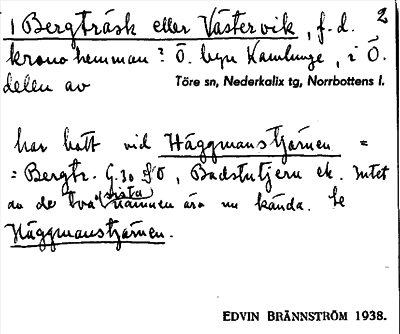 1 Bergträsk eller Västervik, f.d. 2
kronohemman? Ö. byn Kamlunge, i Ö.
delen av Töre sn, Nederkalix tg, Norrbottens l.
har haft vid Häggmanstjärnen =
= Bergtr. G. 30 SO, Badstutjern ek. Intet
av de två sista namnen äro nu kända. Se
Häggmanstjärnen.
EDVIN BRÄNNSTRÖM 1938.